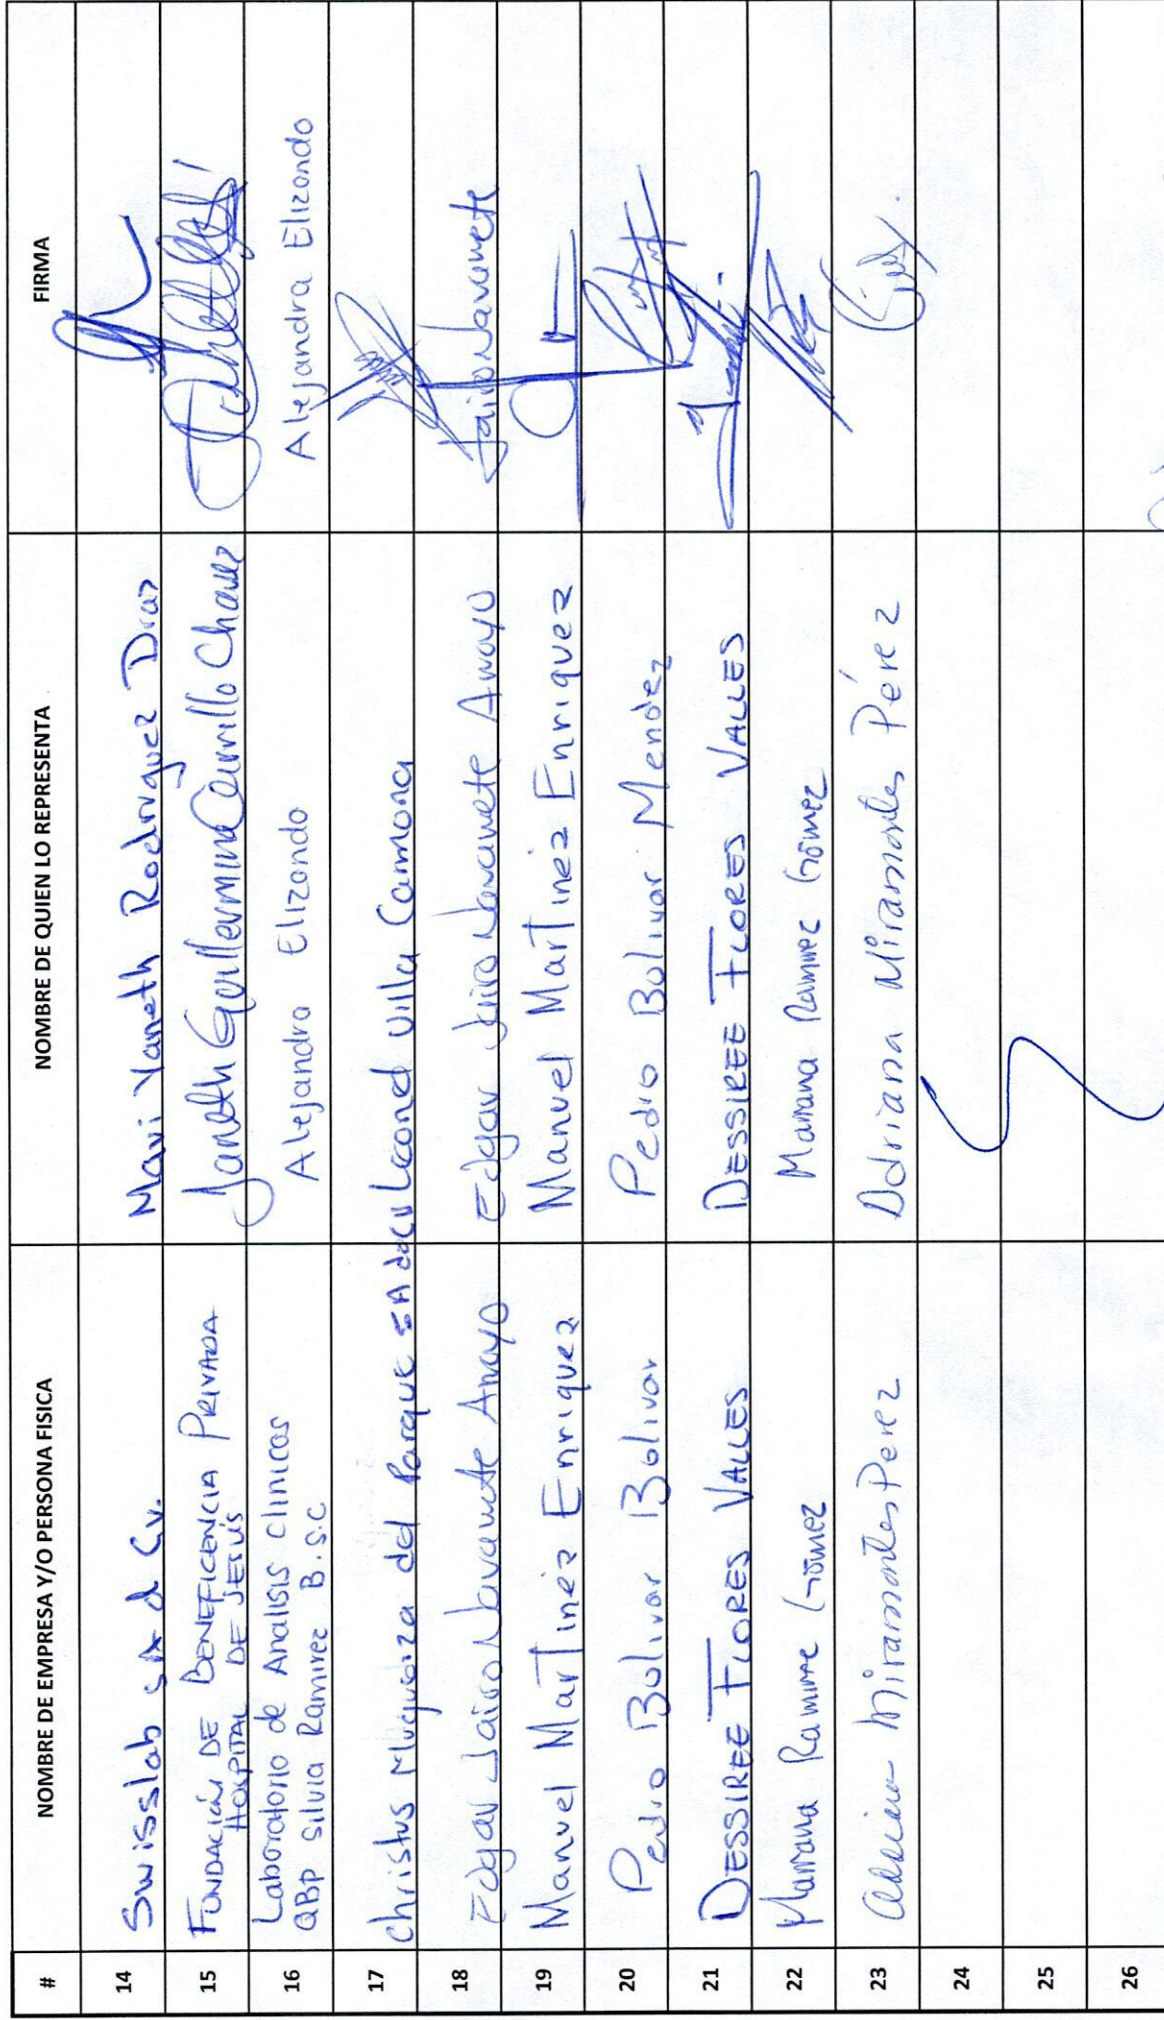 # NOMBRE DE EMPRESA Y/O PERSONA FISICA NOMBRE DE QUIEN LO REPRESENTA FIRMA
14 Swisslab SA d Cv. Mavi Yaneth Rodriguez Diaz
15 FUNDACIÓN DE BENEFICENCIA PRIVADA
HOSPITAL DE JESÚS Janeth Guillermina Carrillo Chavez
16 Laboratorio de Analisis clinicos
QBP Silvia Ramirez B.S.C Alejandra Elizondo Alejandra Elizondo
17 Christus Muguerza del Parque SA de CV Leonel Villa Carmona
18 Edgar Jairo Navarrete Arroyo Edgar Jairo Navarrete Arroyo Jairo Navarrete
19 Manuel Martinez Enriquez Manuel Martinez Enriquez
20 Pedro Bolivar Bolivar Pedro Bolivar Mendez
21 DESSIREE FLORES VALLES DESSIREE FLORES VALLES
22 Mariana Ramirez Gómez Mariana Ramirez Gómez
23 Adriana Miramontes Perez Adriana Miramontes Pérez
24
25
26